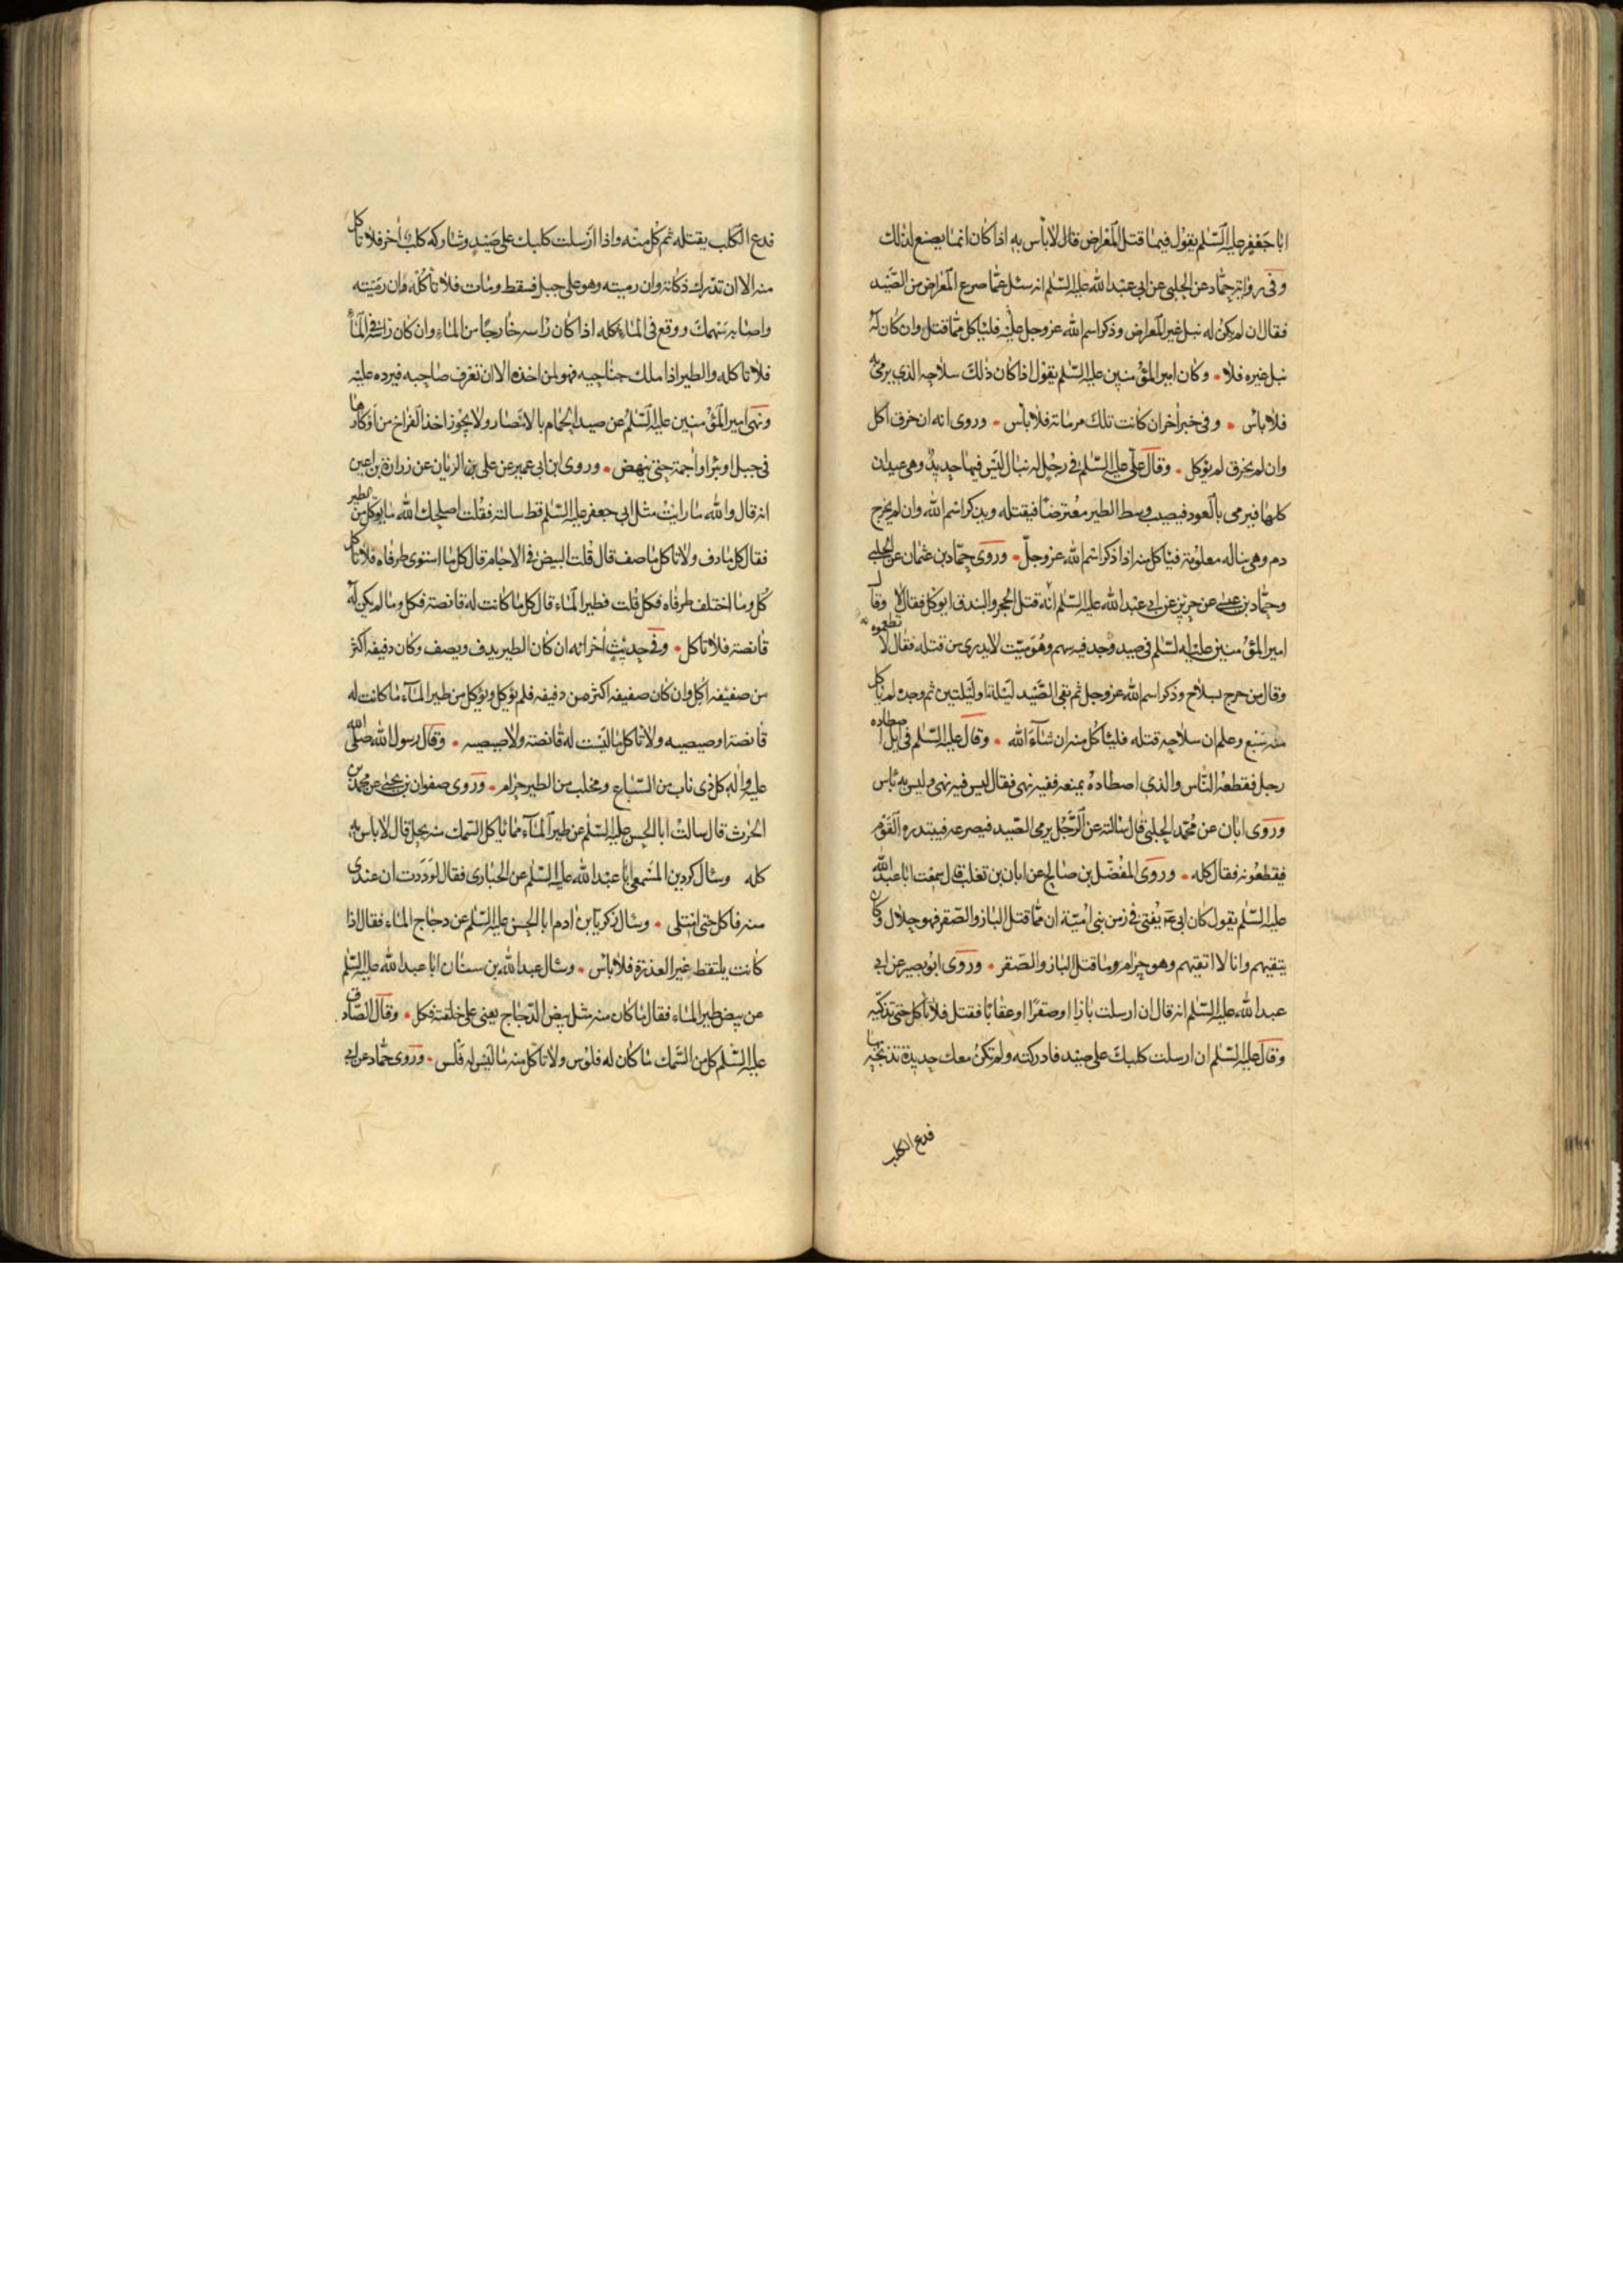 ابا جعفر عليه السلم يقول فيما قتل المعراض قال لا باس به اذا كان انما يصنع لذلك
وفى رواية حماد عن الحلبى عن ابى عبد الله عليه السلم انه سئل عما صرع المعراض من الصيد
فقال ان لم يكن له نبل غير المعراض وذكر اسم الله عز وجل عليه فلياكل مما قتل وان كان له
نبل غيره فلا وكان امير المؤمنين عليه السلم يقول اذا كان ذلك سلاحه الذى يرمى به
فلا باس وفى خبر اخر ان كانت تلك مرماته فلا باس وروى انه ان خرق اكل
وان لم يخرق لم يؤكل وقال على عليه السلم فى رجل له نبال ليس فيها حديد وهى عيدان
كلها فيرمى بالعود فيصيب وسط الطير معترضا فيقتله ويذكر اسم الله وان لم يخرج
دم وهى نباله معلومة فياكل منه اذا ذكر اسم الله عز وجل وروى حماد بن عثمان عن الحلبى
وحماد بن عيسى عن حريز عن ابى عبد الله عليه السلم انه قتل الحجر والبندق ايوكل فقال لا وقال
امير المؤمنين عليه السلم فى صيد وجد فيه سهم وهو ميت لا يدرى من قتله فقال لا تطعموه
وقال من جرح بسلاح وذكر اسم الله عز وجل ثم بقى الصيد ليلة او ليلتين ثم وجده لم ياكل
منه سبع وعلم ان سلاحه قتله فلياكل منه ان شاء الله وقال عليه السلم فى ايل اصطاده
رجل فقطعه الناس والذى اصطاده يمنعه ففيه نهى فقال ليس فيه نهى وليس به باس
وروى ابان عن محمد الحلبى قال سالته عن الرجل يرمى الصيد فيصرعه فيبتدره القوم
فيقطعونه فقال كله وروى المفضل بن صالح عن ابان بن تغلب قال سمعت ابا عبد الله
عليه السلم يقول كان ابى ع يفتى فى زمن بنى امية ان ما قتل الباز والصقر فهو حلال وكان
يتقيهم وانا لا اتقيهم وهو حرام وما قتل الباز والصقر وروى ابو بصير عن ابى
عبد الله عليه السلم انه قال ان ارسلت بازا او صقرا او عقابا فقتل فلا تاكل حتى تذكيه
وقال عليه السلم ان ارسلت كلبك على صيد فادركته ولم تكن معك حديدة تذبحه بها
فدع الكلب
فدع الكلب يقتله ثم كل منه واذا ارسلت كلبك على صيد وشاركه كلب اخر فلا تاكل
منه الا ان تدرك ذكاته وان رميته وهو على جبل فسقط ومات فلا تاكله وان رميته
واصابه سهمك ووقع فى الماء فكله اذا كان راسه خارجا من الماء وان كان راسه فى الماء
فلا تاكله والطير اذا ملك جناحيه فهو لمن اخذه الا ان تعرف صاحبه فيرده عليه
ونهى امير المؤمنين عليه السلم عن صيد الحمام بالامصار ولا يجوز اخذ الفراخ من اوكارها
فى جبل او بئر او اجمة حتى ينهض وروى ابن ابى عمير عن على بن الزيان عن زرارة بن اعين
انه قال والله ما رايت مثل ابى جعفر عليه السلم قط سالته فقلت اصلحك الله ما يوكل من الطير
فقال كل ما دف ولا تاكل ما صف قال قلت البيض فى الاجام قال كل ما استوى طرفاه فلا تاكل
كل وما اختلف طرفاه فكل قلت فطير الماء قال كل ما كانت له قانصة فكل وما لم يكن له
قانصة فلا تاكل وفى حديث اخر انه ان كان الطير يدف ويصف وكان دفيفه اكثر
من صفيفه اكل وان كان صفيفه اكثر من دفيفه فلم يؤكل ويؤكل من طير الماء ما كانت له
قانصة او صيصية ولا تاكل ما ليست له قانصة ولا صيصيه وقال رسول الله صلى الله
عليه واله كل ذى ناب من السباع ومخلب من الطير حرام وروى صفوان بن يحيى عن محمد بن
الحرث قال سالت ابا الحسن عليه السلم عن طير الماء مما ياكل السمك منه يحل قال لا باس به
كله وسال كردين المسمعى ابا عبد الله عليه السلم عن الحبارى فقال لوددت ان عندى
منه فاكل حتى امتلى وسال زكريا بن ادم ابا الحسن عليه السلم عن دجاج الماء فقال اذا
كانت يلتقط غير العذرة فلا باس وسال عبد الله بن سنان ابا عبد الله عليه السلم
عن بيض طير الماء فقال ما كان منه مثل بيض الدجاج يعنى على خلقته فكل وقال الصادق
عليه السلم كل من السمك ما كان له فلوس ولا تاكل منه ما ليس له فلس وروى حماد عن ابى